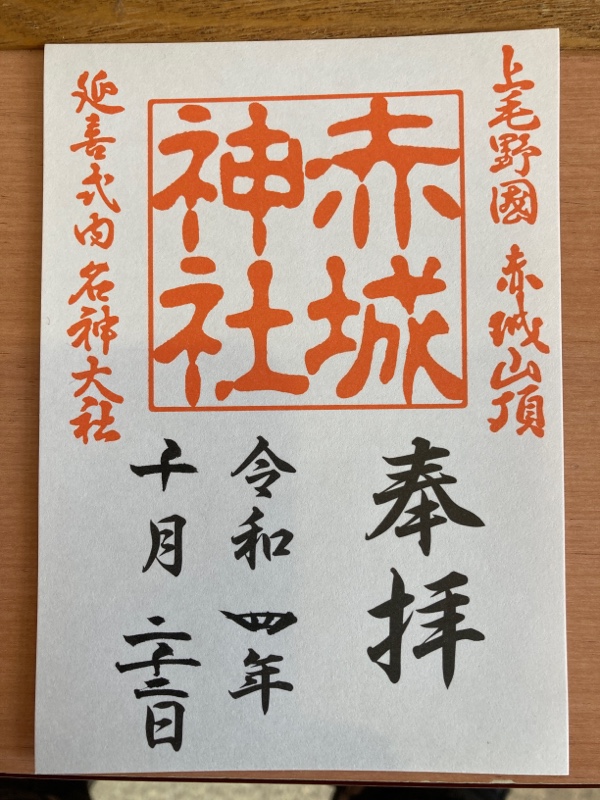 上毛野國 赤城山頂
赤城
神社
延喜式内 名神大社
奉拝
令和四年
十月二十二日